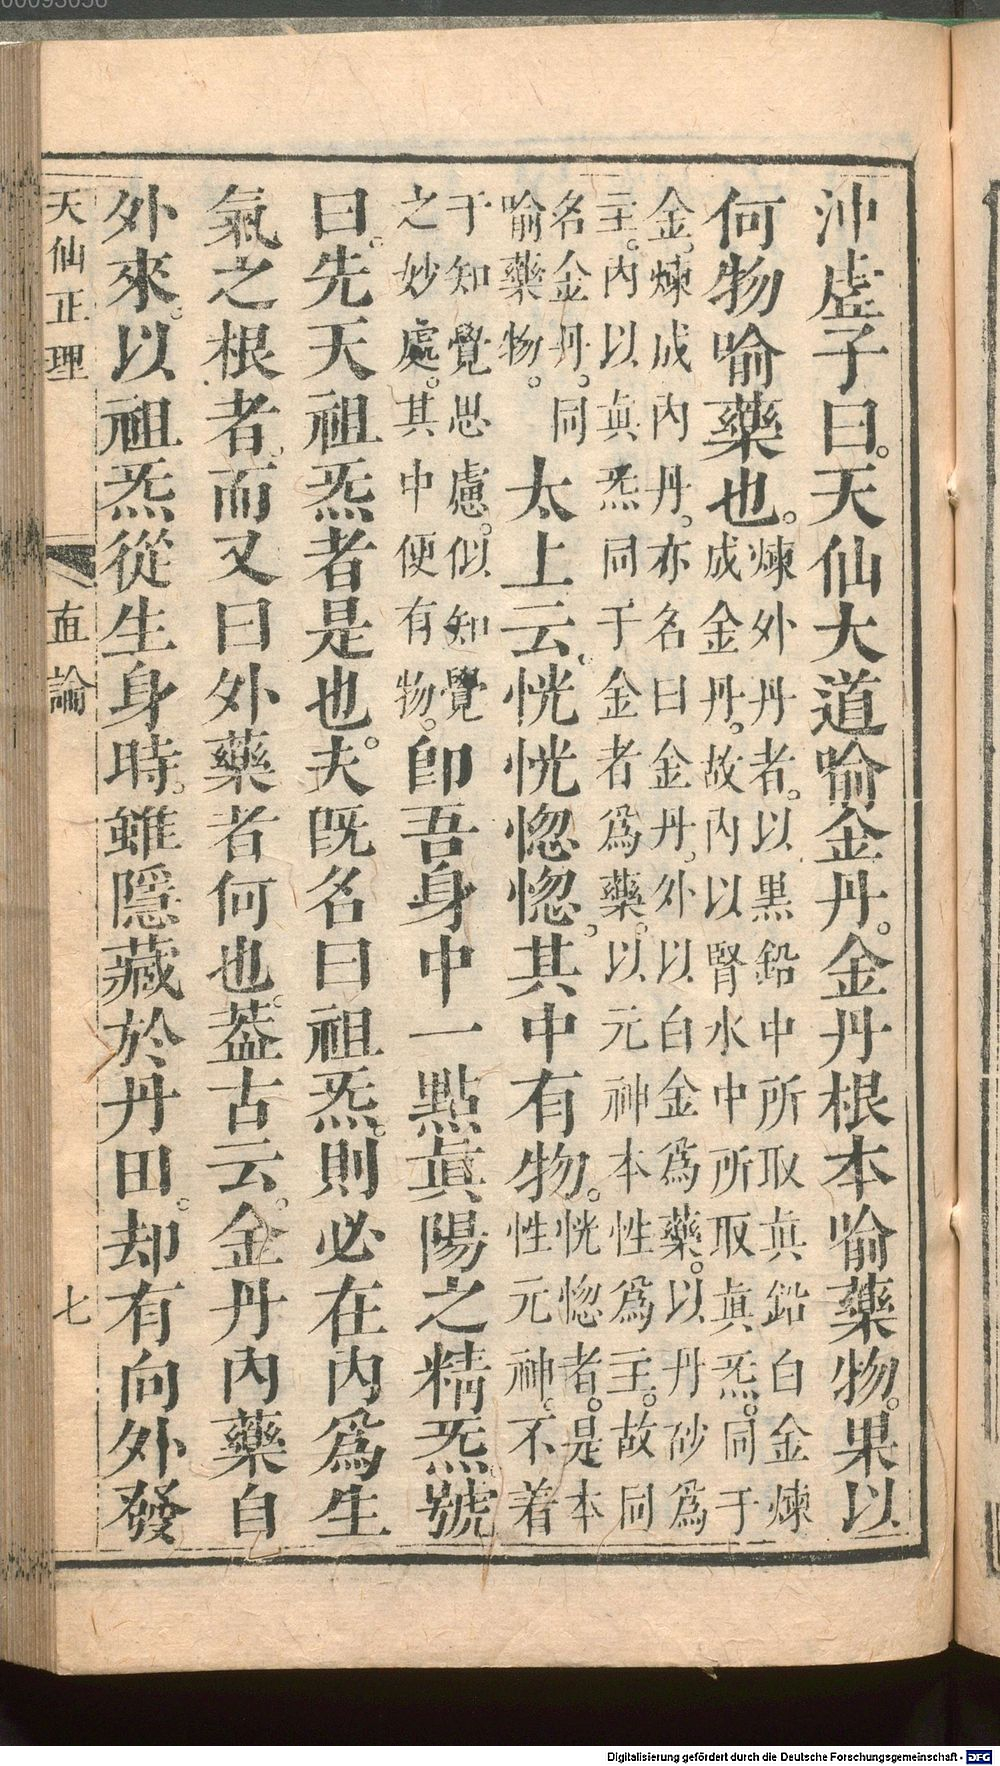 沖虛子曰。天仙大道喻金丹。金丹根本喻藥物。果以
何物喻藥也。
煉外丹者。以黑鉛中所取眞鉛白金煉
成金丹。故內以腎水中所取眞炁。同于
金。煉成內丹。亦名曰金丹。外以白金爲藥。以丹砂爲
主。內以眞炁同于金者爲藥。以元神本性爲主。故同
名金丹。同
喻藥物。
太上云。恍恍惚惚。其中有物。
恍惚者。是本
性元神。不着
于知覺思慮。似知覺
之妙處。其中便有物。
卽吾身中一點眞陽之精炁。號
曰。先天祖炁者是也。夫既名曰祖炁。則必在內爲生
氣之根者。而又曰外藥者何也。葢古云。金丹內藥自
外來。以祖炁從生身時。雖隱藏於丹田。却有向外發
天仙正理 直論 七
00093056
Digitalisierung gefördert durch die Deutsche Forschungsgemeinschaft - DFG